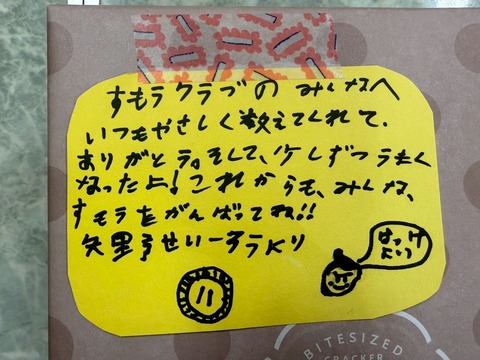 すもうクラブの みんなへ
いつもやさしく教えてくれて、
ありがとう。そして、少しずつうまく
なったよ!これからも、みんな、
すもうをがんばってね!!
矢野せい一ろうより
はっけ
よいっ
BITESIZED
CRACKER